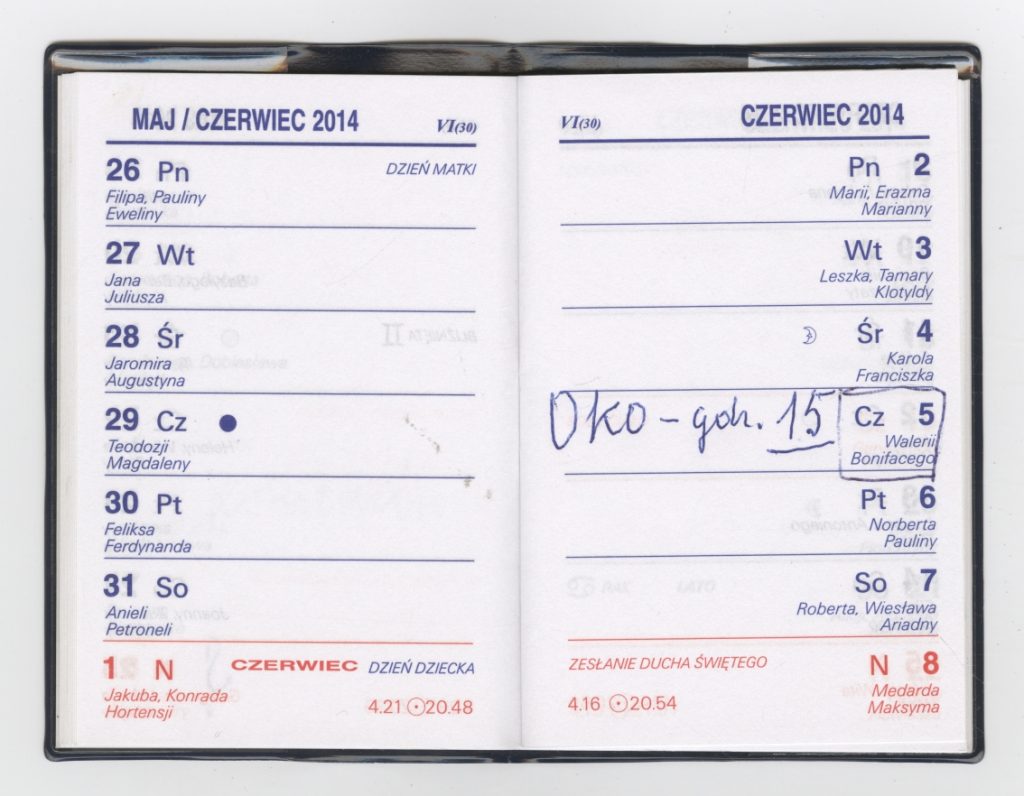 MAJ / CZERWIEC 2014
VI(30)
26 Pn DZIEŃ MATKI
Filipa, Pauliny
Eweliny
27 Wt
Jana
Juliusza
28 Śr
Jaromira
Augustyna
29 Cz
Teodozji
Magdaleny
30 Pt
Feliksa
Ferdynanda
31 So
Anieli
Petroneli
1 N CZERWIEC DZIEŃ DZIECKA
Jakuba, Konrada
Hortensji
4.21 20.48
VI(30)
CZERWIEC 2014
Pn 2
Marii, Erazma
Marianny
Wt 3
Leszka, Tamary
Klotyldy
Śr 4
Karola
Franciszka
OKO - godz. 15 Cz 5
Walerii
Bonifacego
Pt 6
Norberta
Pauliny
So 7
Roberta, Wiesława
Ariadny
ZESŁANIE DUCHA ŚWIĘTEGO N 8
Medarda
Maksyma
4.16 20.54